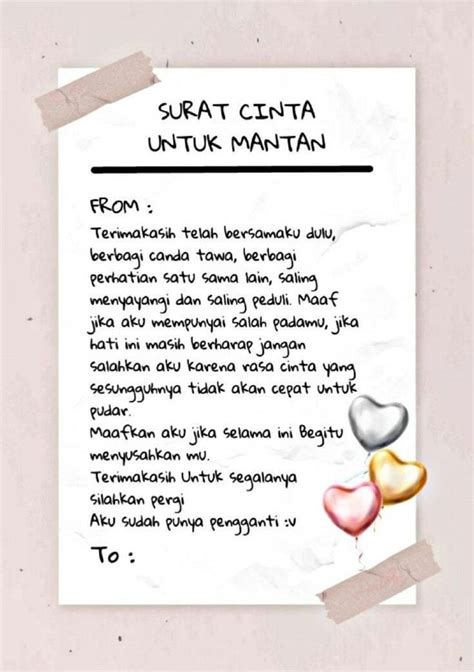 SURAT CINTA
UNTUK MANTAN
FROM :
Terimakasih telah bersamaku dulu,
berbagi canda tawa, berbagi
perhatian satu sama lain, saling
menyayangi dan saling peduli. Maaf
jika aku mempunyai salah padamu, jika
hati ini masih berharap jangan
salahkan aku karena rasa cinta yang
sesungguhnya tidak akan cepat untuk
pudar.
Maafkan aku jika selama ini Begitu
menyusahkan mu.
Terimakasih Untuk segalanya
silahkan pergi
Aku sudah punya pengganti :v
To :